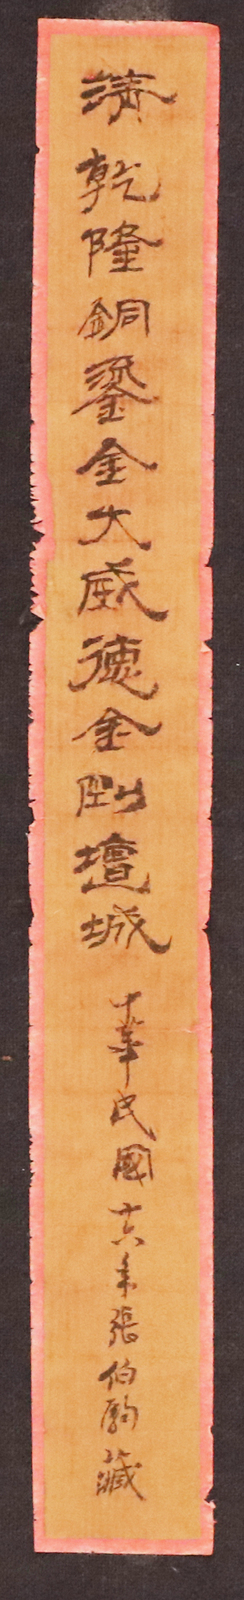 清乾隆銅鎏金大威德金剛壇城 中華民國十六年張伯駒藏